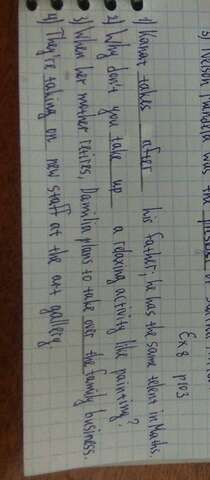 5) Nelson Mandela was the
Ex 8 p103
1) Kanat takes after his father; he has the same telent in Maths.
2) Why don't you take up a relaxing activity like painting?
3) When her mother retires, Damilia plans to take over the family business.
4) They're taking on new staff at the art gallery